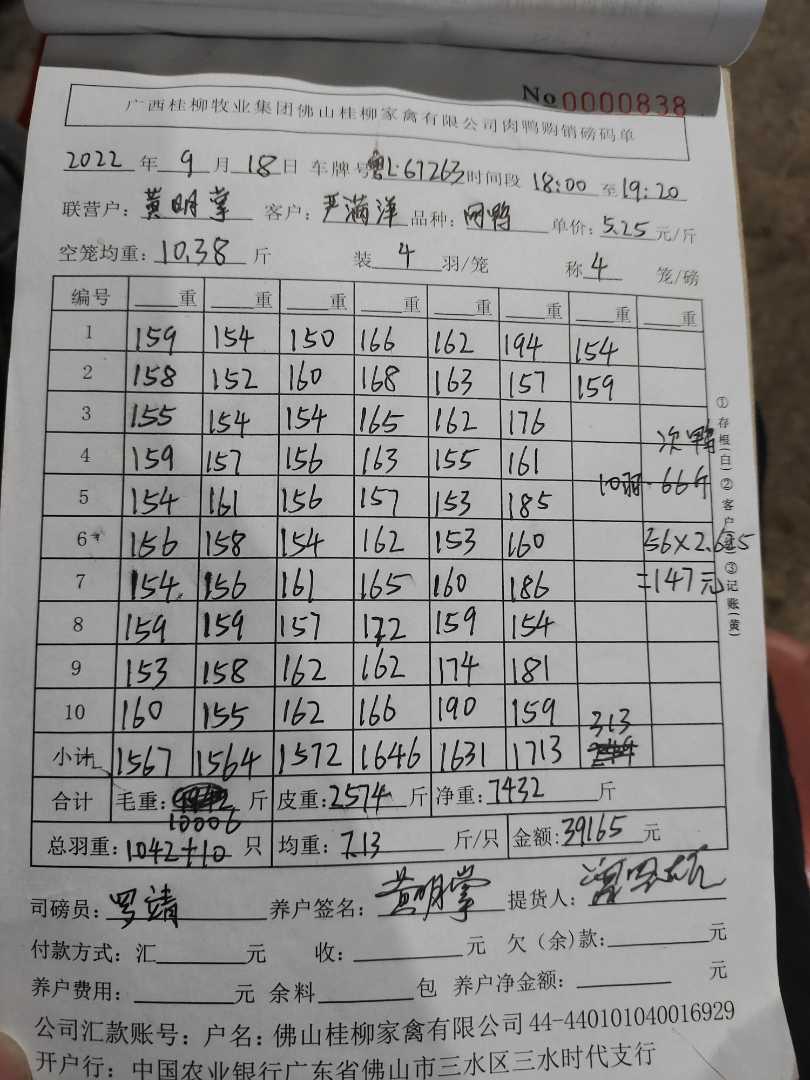 No 0000838
广西桂柳牧业集团佛山桂柳家禽有限公司肉鸭购销磅码单
2022年9月18日 车牌号粤L·67263时间段 18:00至19:20
联营户:黄明掌 客户:严满洋 品种: 单价:5.25元/斤
空笼均重:10.38斤 装4羽/笼 称4笼/磅
编号 重 重 重 重 重 重 重 重
1 159 154 150 166 162 194 154
2 158 152 160 168 163 157 159
3 155 154 154 165 162 176
次鸭
4 159 157 156 163 155 161
5 154 161 156 157 153 185 10羽·66斤
6 156 158 154 162 153 160 56×2.625
7 154 156 161 165 160 186 =147元
8 159 159 157 172 159 154
9 153 158 162 162 174 181
10 160 155 162 166 190 159
小计 1567 1564 1572 1646 1631 1713 313
合计 毛重:10006斤 皮重:2574斤 净重:7432斤
总羽重:1042+10只 均重:7.13斤/只 金额:39165元
①存根(白)②客户(红)③记账(黄)
司磅员:罗靖 养户签名:黄明掌 提货人:
付款方式:汇 元 收: 元 欠(余)款: 元
养户费用: 元 余料 包 养户净金额: 元
公司汇款账号:户名:佛山桂柳家禽有限公司44-440101040016929
开户行:中国农业银行广东省佛山市三水区三水时代支行